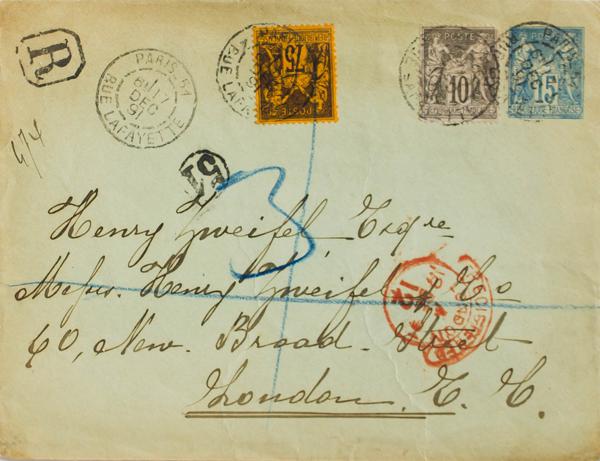 R
PARIS-54
RUE LAFAYETTE
DEC
75
POSTE
10
15
4/4
51
3
Henry Zweifel Esqre
Messrs. Henry Zweifel & Co
60, New. Broad. Street
London. E. C.